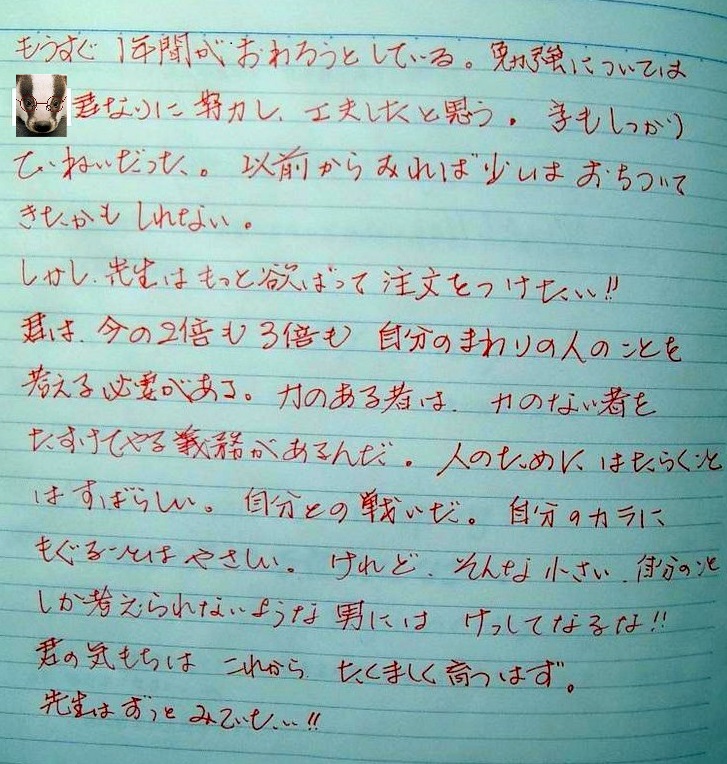 もうすぐ1年間がおわろうとしている。勉強については
君なりに努力し、工夫したと思う。字もしっかり
ていねいだった。以前からみれば少しはおちついて
きたかもしれない。
しかし、先生はもっと欲ばって注文をつけたい!!
君は、今の2倍も3倍も自分のまわりの人のことを
考える必要がある。力のある者は、力のない者を
たすけてやる義務があるんだ。人のためにはたらくこと
はすばらしい。自分との戦いだ。自分のカラに
もぐることはやさしい。けれど、そんな小さい、自分のこと
しか考えられないような男にはけっしてなるな!!
君の気もちはこれからたくましく育つはず。
先生はずっとみていたい!!